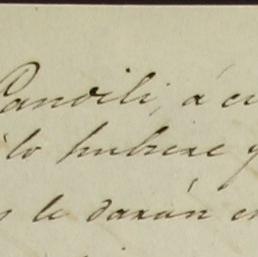 Candili, á cu
lo hubiere q
s le darán en